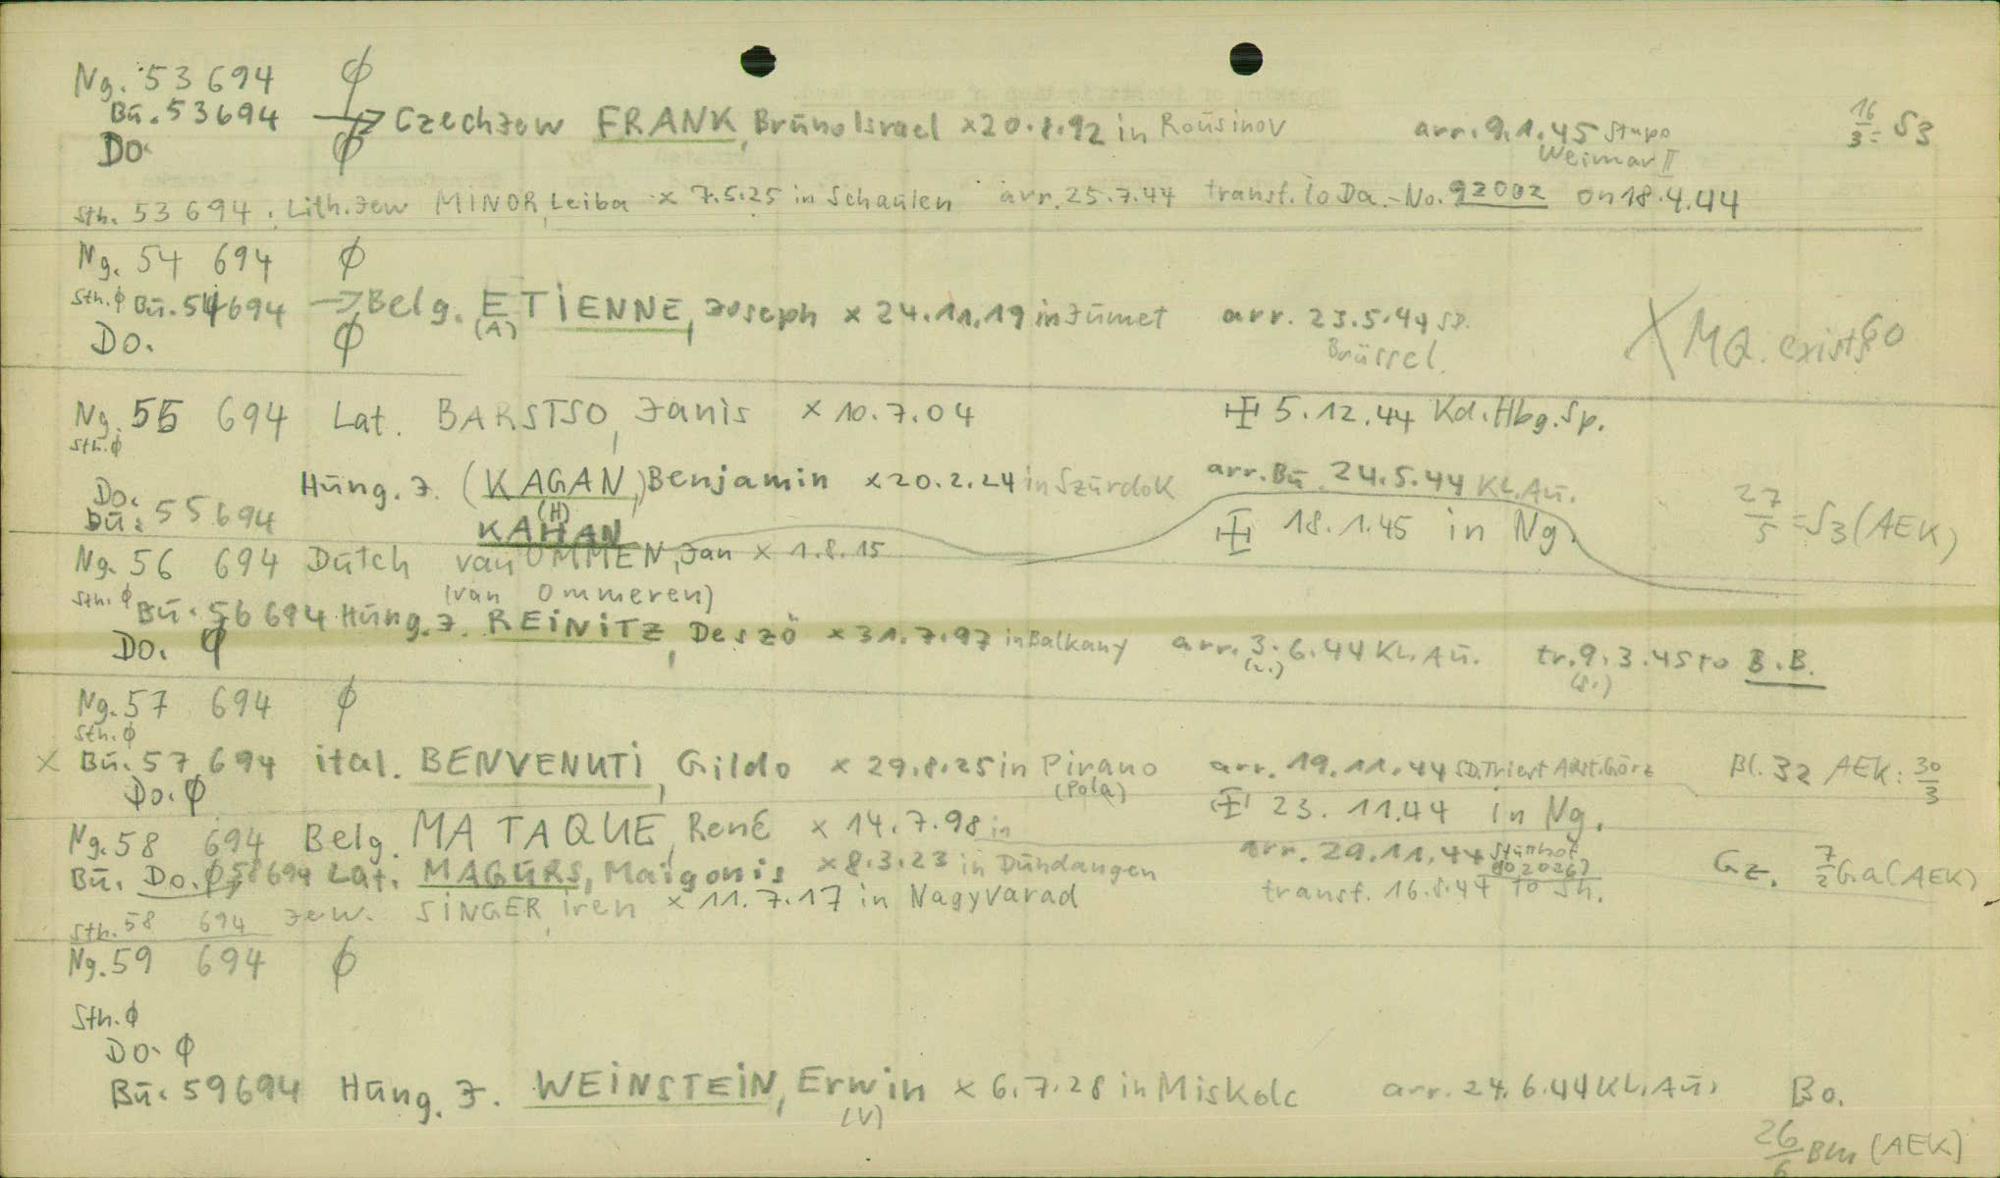 Ng. 53 694 ϕ
Bū. 53694 → Czechjew FRANK, Brūno Israel x 20.8.92 in Roūsinov arr. 9.1.45 Stapo 16/3 = S3
Do. ϕ Weimar II
Sth. 53 694. Lith. Jew MINOR, Leiba x 7.5.25 in Schaūlen arr. 25.7.44 transf. to Da.-No. 92002 on 18.4.44
Ng. 54 694 ϕ
Sth. ϕ Bū. 54694 → Belg. ETIENNE, Joseph x 24.11.19 in Jūmet arr. 23.5.44 SP.
(A) Brüssel.
Do. ϕ X MQ. exists
Ng. 55 694 Lat. BARSTSO, Janis x 10.7.04 5.12.44 Kd. Hbg. Sp.
Sth. ϕ
Do. Hūng. J. (KAGAN,) Benjamin x 20.2.24 in Szūrdok arr. Bū 24.5.44 KL. Aū.
Bū. 55694 (H) KAHAN 18.1.45 in Ng. 27/5 = S3 (AEK)
Ng. 56 694 Dūtch van OMMEN, Jan x 1.8.15
(van Ommeren)
Sth. ϕ Bū. 56694 Hūng. J. REINITZ, Deszö x 31.7.97 in Balkany arr. 3.6.44 KL. Aū. tr. 9.3.45 to B.B.
Do. ϕ (2.) (8.)
Ng. 57 694 ϕ
Sth. ϕ
x Bū. 57 694 ital. BENVENUTI, Gildo x 29.8.25 in Pirano arr. 19.11.44 SD. Triest Aūst. Görz Bl. 32 AEK: 30/3
Do. ϕ (Pola)
Ng. 58 694 Belg. MATAQUE, René x 14.7.98 in 23.11.44 in Ng.
Bū. Do. ϕ 58694 Lat. MAGURS, Maigonis x 8.3.23 in Dūndangen arr. 29.11.44 Stūtthof Gz. 7/2 Ga (AEK)
Sth. 58 694 Jew. SINGER, Iren x 11.7.17 in Nagyvarad transf. 16.8.44 to Sh.
Ng. 59 694 ϕ
Sth. ϕ
Do. ϕ
Bū. 59694 Hūng. J. WEINSTEIN, Erwin x 6.7.28 in Miskolc arr. 24.6.44 KL. Aū. Bo.
(V) 26/6 Blm (AEK)